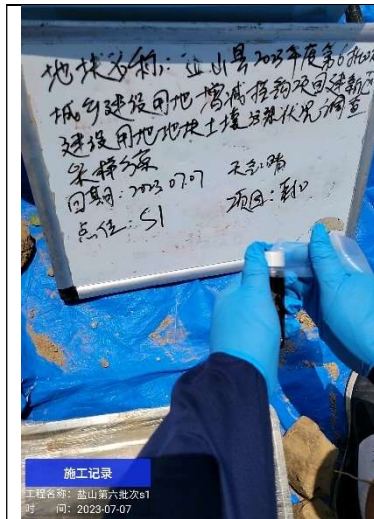 地块名称：盐山县2023年度第6批次
城乡建设用地增减挂钩项目建新区
建设用地地块土壤污染状况调查
采样方案
日期：2023.07.07 天气：晴
点位：S1 项目：
施工记录
工程名称：盐山第六批次s1
时 间：2023-07-07